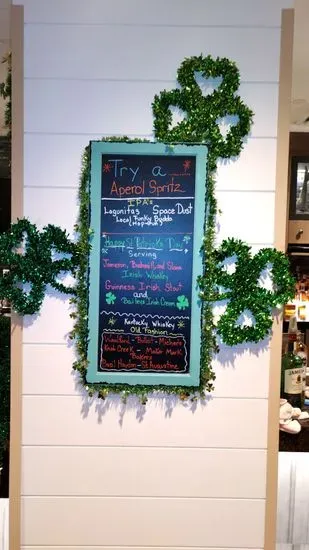 Try a......
Aperol Spritz
IPA's
Lagunitas Space Dust
Local Funky Buddha
(Hop-Gun)
Happy St Patrick's Day
Serving
Jameson, Bushmill, and Slane
Irish Whiskey
Guinness Irish Stout
and
Baileys Irish Cream
Kentucky Whiskey
Old Fashion
Woodford - Bulleit - Michters
Knob Creek - Maker Mark
Basil Hayden - St. Augustine
JAMES